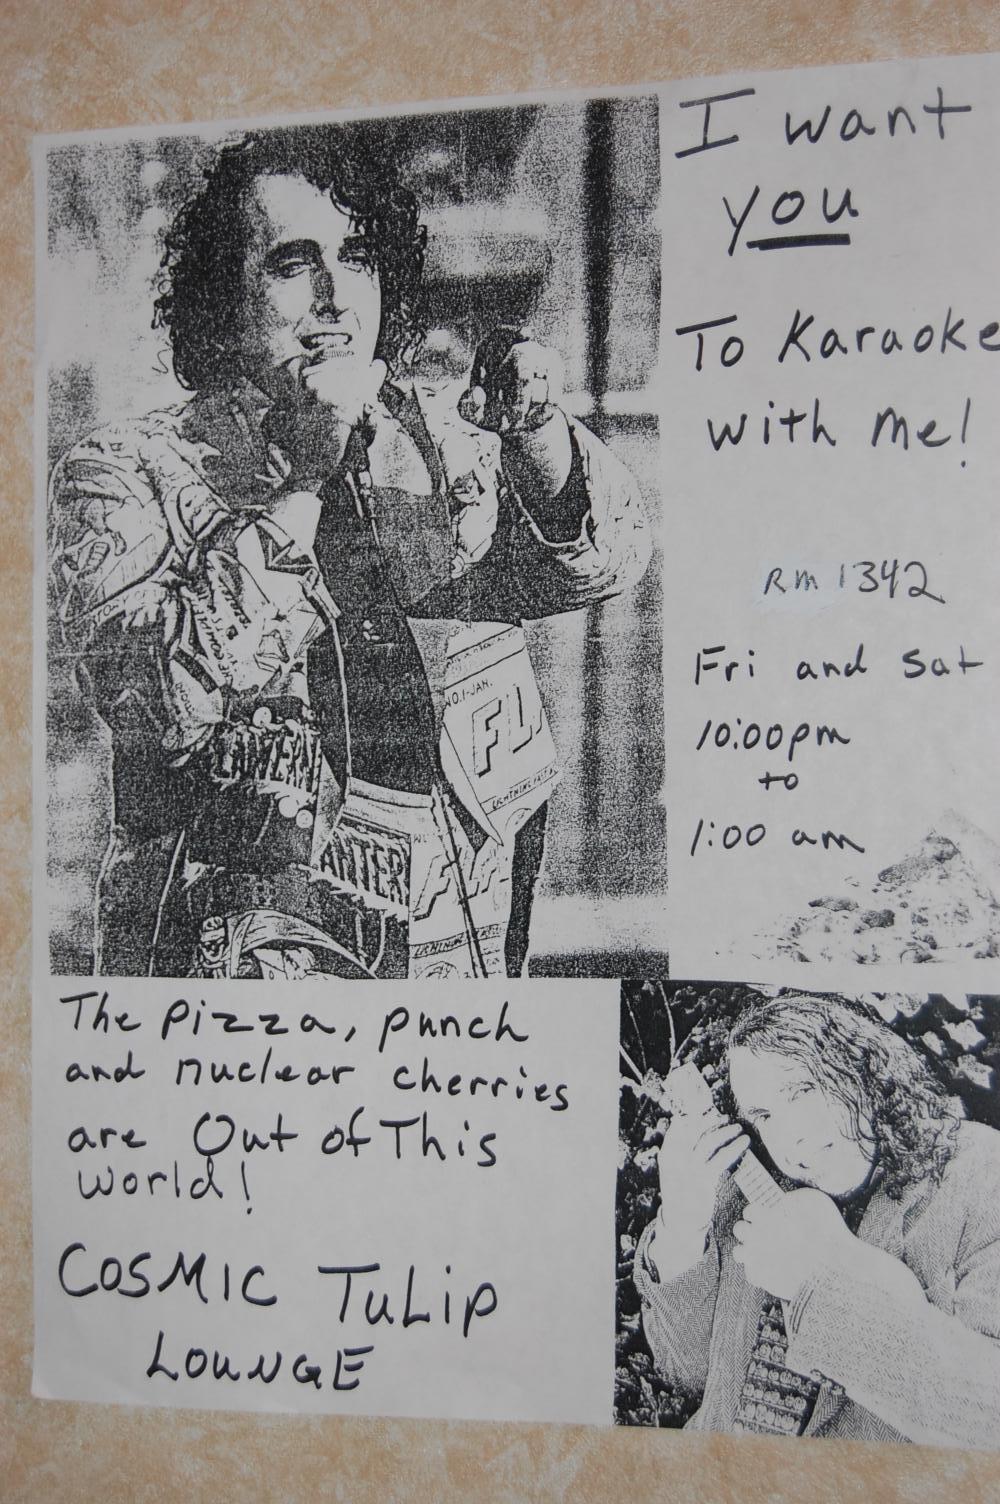 I want
you
To Karaoke
with me!
RM 1342
Fri and Sat
10:00pm
to
1:00 am
NO.1-JAN.
FL
LANTERN
ANTER
FLA
The pizza, punch
and nuclear cherries
are Out of This
world!
COSMIC TULIP
LOUNGE